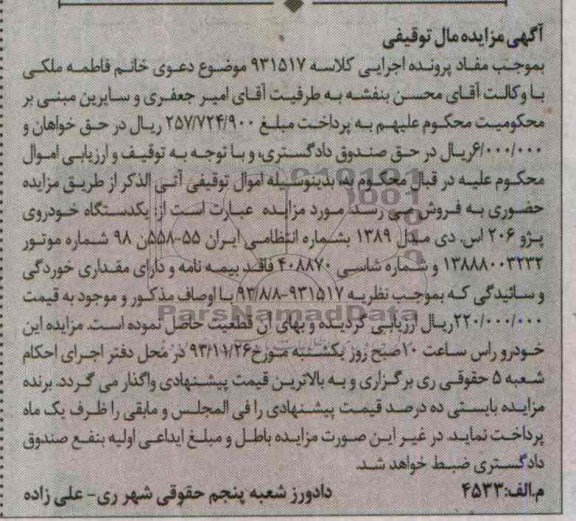 آگهی مزایده مال توقیفی
بموجب مفاد پرونده اجرایی کلاسه ۹۳۱۵۱۷ موضوع دعوی خانم فاطمه ملکی
با وکالت آقای محسن بنفشه به طرفیت آقای امیر جعفری و سایرین مبنی بر
محکومیت محکوم علیهم به پرداخت مبلغ ۲۵۷/۷۲۴/۹۰۰ ریال در حق خواهان و
۶/۰۰۰/۰۰۰ریال در حق صندوق دادگستری، و با توجه به توقیف و ارزیابی اموال
محکوم علیه در قبال محکوم به، بدینوسیله اموال توقیفی آتی الذکر از طریق مزایده
حضوری به فروش می رسد. مورد مزایده عبارت است از: یکدستگاه خودروی
پژو ۲۰۶ اس. دی مدل ۱۳۸۹ بشماره انتظامی ایران ۵۵-۵۵۸ن ۹۸ شماره موتور
۱۳۸۸۸۰۰۳۲۳۲ و شماره شاسی ۴۰۸۸۷۰ فاقد بیمه نامه و دارای مقداری خوردگی
و سائیدگی که بموجب نظریه ۹۳۱۵۱۷-۹۳/۸/۸ با اوصاف مذکور و موجود به قیمت
۲۲۰/۰۰۰/۰۰۰ریال ارزیابی گردیده و بهای آن قطعیت حاصل نموده است. مزایده این
خودرو راس ساعت ۱۰صبح روز یکشنبه مورخ ۹۳/۱۱/۲۶ در محل دفتر اجرای احکام
شعبه ۵ حقوقی ری برگزاری و به بالاترین قیمت پیشنهادی واگذار می گردد. برنده
مزایده بایستی ده درصد قیمت پیشنهادی را فی المجلس و مابقی را ظرف یک ماه
پرداخت نماید. در غیر این صورت مزایده باطل و مبلغ ایداعی اولیه بنفع صندوق
دادگستری ضبط خواهد شد.
م.الف:۴۵۳۳ دادورز شعبه پنجم حقوقی شهر ری- علی زاده
ParsNamadData